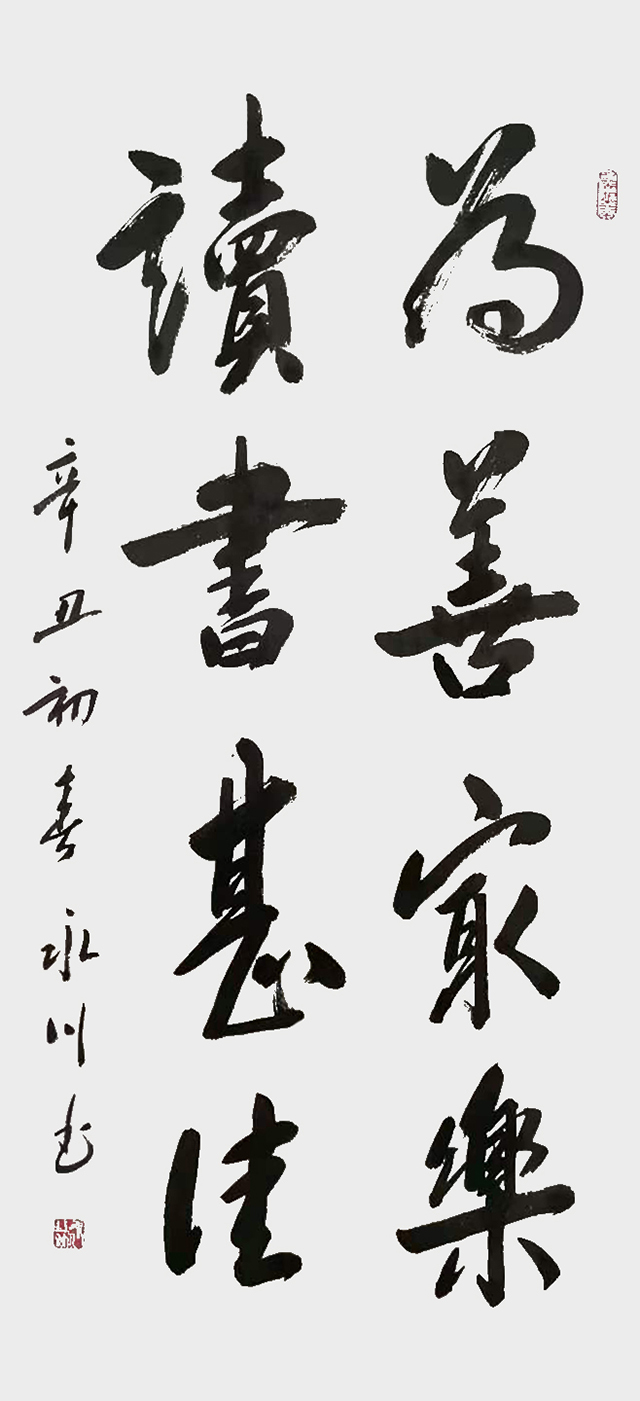 為善冣樂
讀書甚佳
辛丑初春永川书